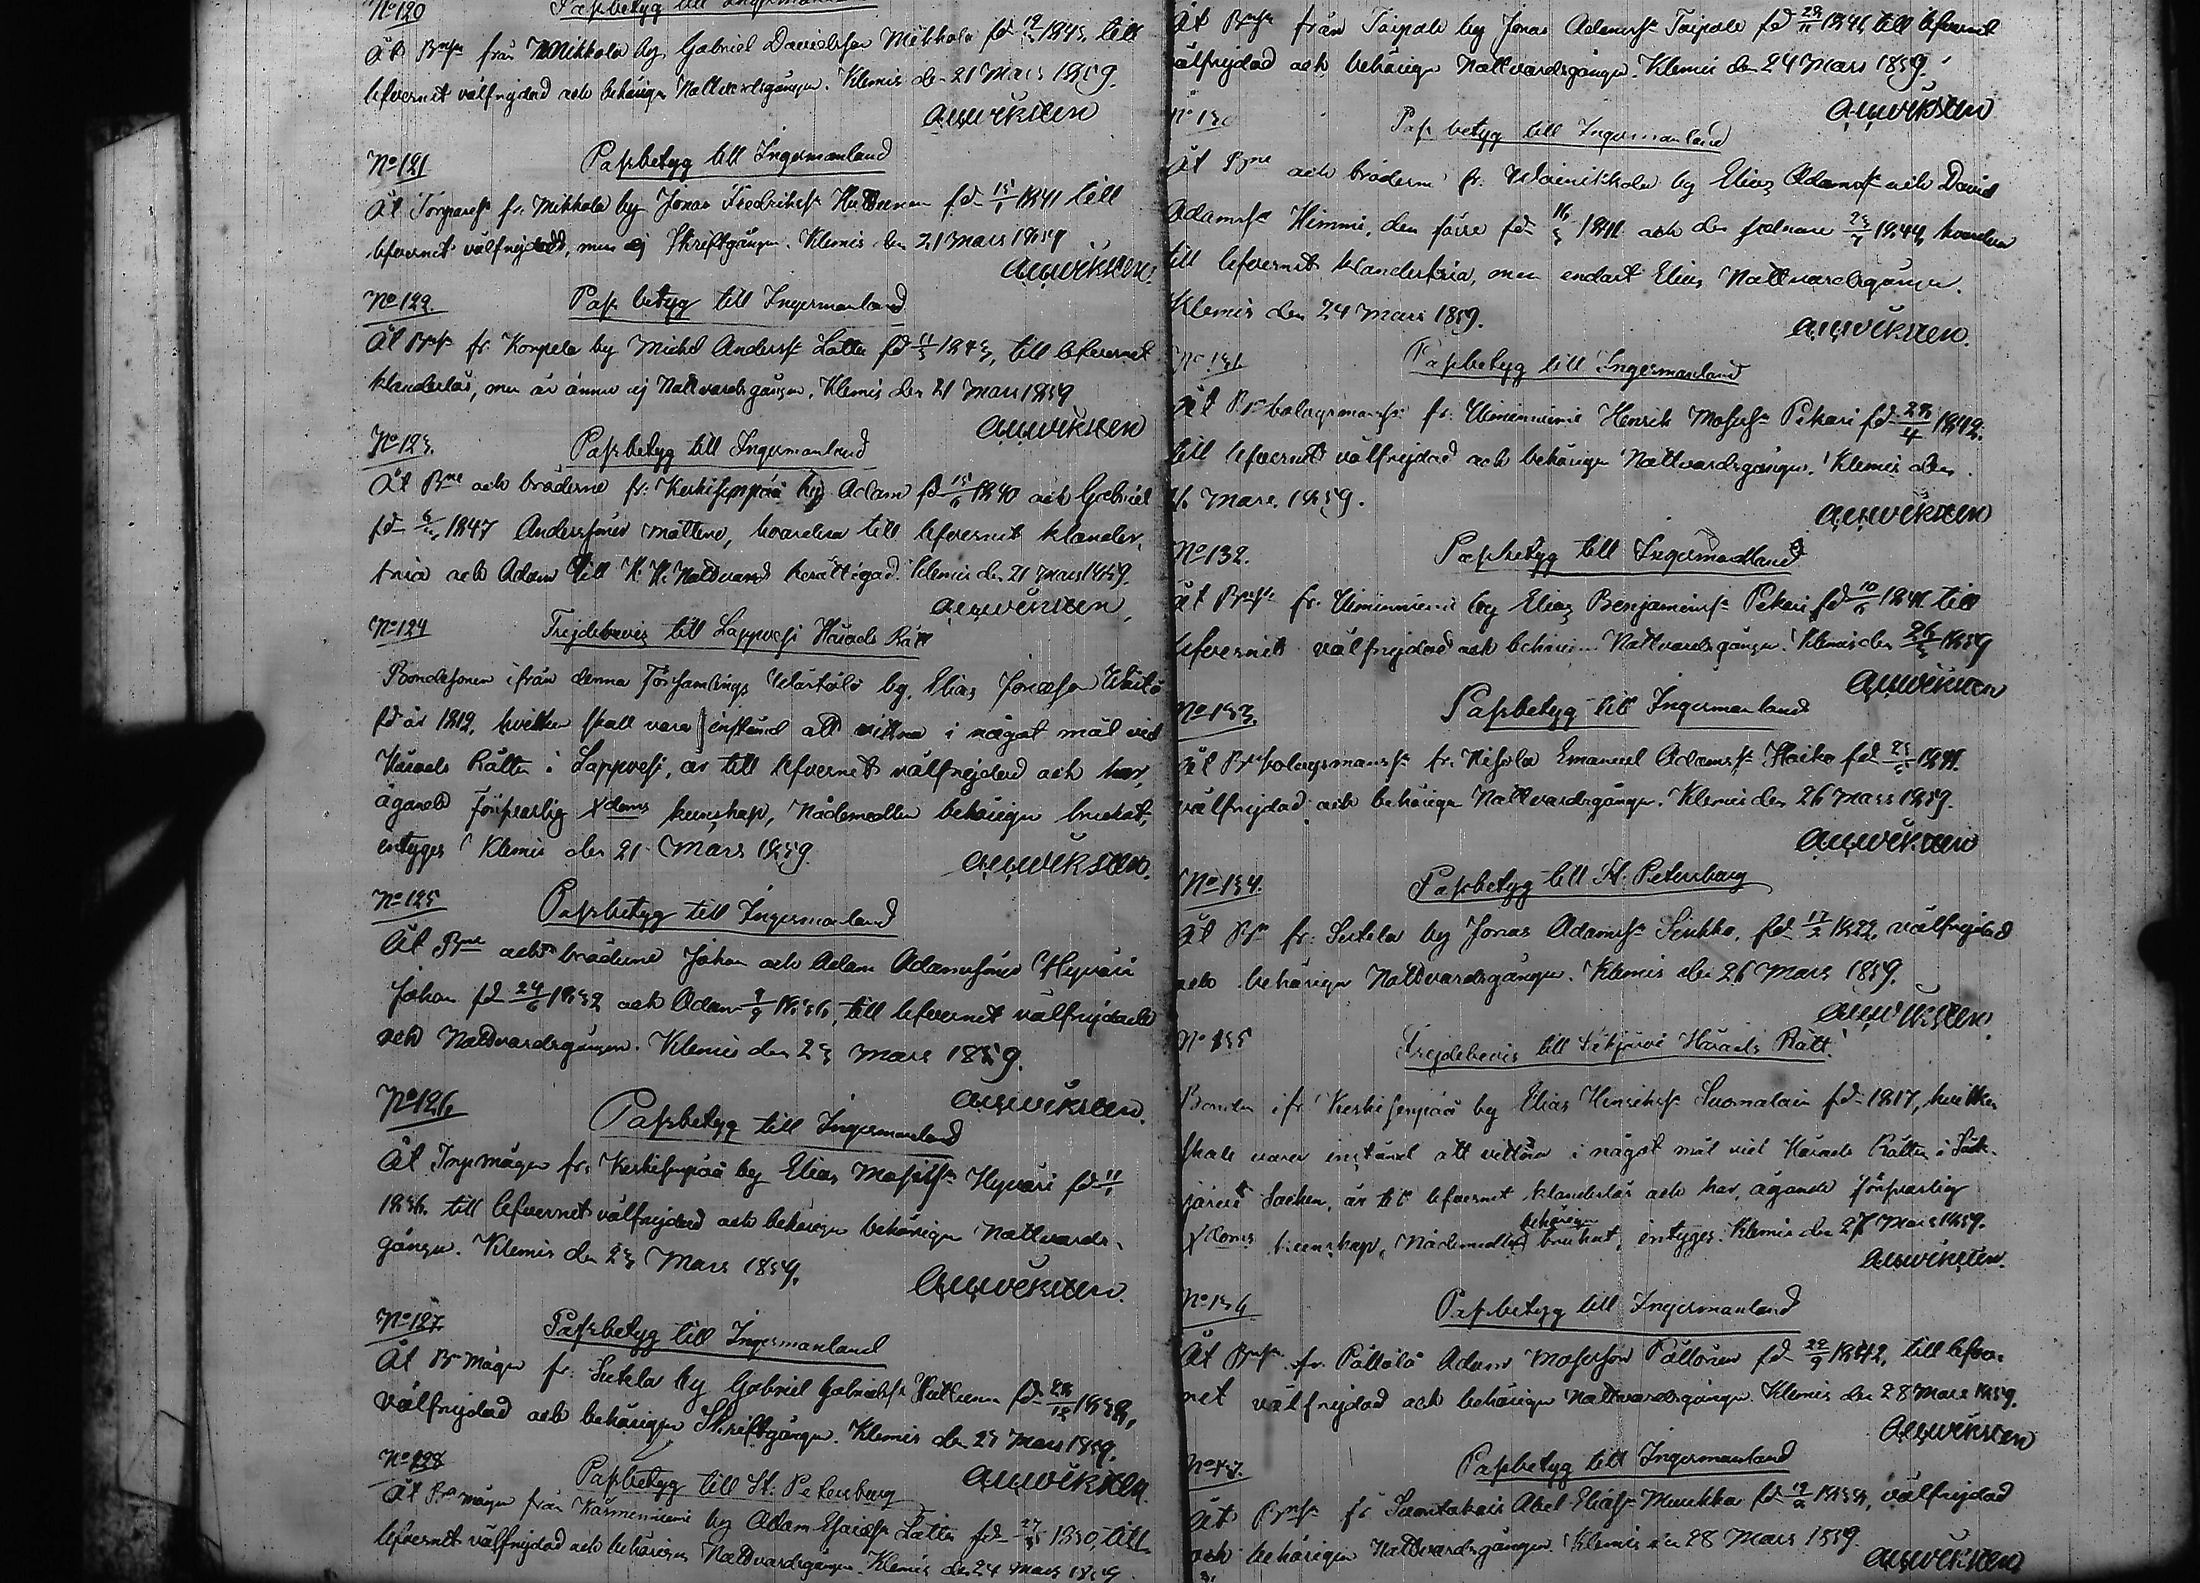 No 120 Passbetyg till Ingermanland
Åt Bnsn från Mikkola by Gabriel Davidsson Mikkola fd 19/ 1843, till
lefvernet välfrejdad och behörigen Nattvardsgången. Klemis den 21 Mars 1859.
A.W. Wiksten
No 121 Passbetyg till Ingermanland
Åt Torparesn fr. Mikkola by Jonas Fredrikssn Huttunen fd 15/1 1841 till
lefvernet välfrejdad, men ej Skriftgången. Klemis den 21 Mars 1859
A.W. Wiksten.
No 122. Pass betyg till Ingermanland
Åt Bnsn fr. Korpela by Michel Anderssn Lätti fd 1843, till lefvernet
klanderlös, men är ännu ej Nattvardsgången, Klemis den 21 Mars 1859
A.W. Wiksten
No 123. Passbetyg till Ingermanland
Åt Bne och bröderne fr. by Adam fd 15/6 1840 och Gabriel
fd 6/ 1847 Anderssöner hvardera till lefvernet klander,
fria och Adam till H. H. Nattvard berättigad. Klemis den 21 Mars 1859.
A.W. Wiksten,
No 124 Frejdebevis till Lappvesi Härads Rätt
Bondesonen ifrån denna Församlings by, Elias Jonasson
fd år 1812, hvilken skall vara instämd att vittna i något mål vid
Härads Rätten i Lappvesi, är till lefvernet välfrejdad och har,
ägande Försvarlig Xdoms kunskap, Nådemedlen behörigen brukat,
intyges Klemis den 21 Mars 1859.
A.W. Wiksten.
No 125 Passbetyg till Ingermanland
Åt Bne och bröderne Johan och Adam Adamssöner Hyväri
Johan fd 24/6 1832 och Adam 9/9 1836, till lefvernet välfrejdade
och Nattvardsgången. Klemis den 23 Mars 1859.
A.W. Wiksten.
No 126, Passbetyg till Ingermanland
Åt Inp mågen fr. by Elias Hyväri fd 11/
1836. till lefvernet välfrejdad och behörigen behörigen Nattvards-
gången. Klemis den 23 Mars 1859.
A.W. Wiksten.
No 127 Passbetyg till Ingermanland
Åt Be mågen fr. Sutela by Gabriel Gabrielssn Huttunen fd 28/12 1838,
välfrejdad och behörigen Skriftgången. Klemis den 23 Mars 1859.
A.W. Wiksten.
No 128 Passbetyg till St. Petersburg
Åt Be mågen från by Adam Esaiassn Lätti fd 27/ 1830, till
lefvernet välfrejdad och behörigen Nattvardsgången. Klemis den 24 Mars 1859
Åt Bnsn från Taipale by Jonas Adamssn Taipale fd till lefvernet
välfrejdad och behörigen Nattvardsgången. Klemis den 24 Mars 1859.
A.W. Wiksten
No 130 Pass betyg till Ingermanland
Åt Bne och bröderne fr. Wainikkola by Elias Adamssn och David
Adamssn Himmi, den förre fd 16/3 1841 och den sednare 23/7 1844, hvardera
till lefvernet klanderfria, men endast Elias Nattvardsgången.
Klemis den 24 Mars 1859.
A.W. Wiksten.
No 131 Passbetyg till Ingermanland
Åt Be bolagsmanssn fr. Henrik Mosessn Pekari fd 28/4 1842.
till lefvernet välfrejdad och behörigen Nattvardsgången. Klemis den
Mars 1859.
A.W. Wiksten
No 132. Passbetyg till Ingermanland
Åt Bnsn fr. by Elias Benjaminssn Pekari fd 10/6 1841 till
lefvernet välfrejdad och behörigen Nattvardsgången. Klemis den 26/3 1859
A.W. Wiksten
No 133. Passbetyg till Ingermanland
Åt Be bolagsmanssn fr. Emanuel Adamssn fd 1841.
välfrejdad och behörigen Nattvardsgången. Klemis den 26 Mars 1859.
A.W. Wiksten
No 134. Passbetyg till St. Petersburg
Åt fr. Sutela by Jonas Adamssn fd 17/2 1822, välfrejdad
och behörigen Nattvardsgången. Klemis den 26 Mars 1859.
A.W. Wiksten.
No 135 Frejdebevis till Säkjärvi Härads Rätt.
Bonden ifr by Elias Henrikssn Suomalain fd 1817, hvilken
skall vara instämd att vittna i något mål vid Härads Rätten i Säk-
järvi Socken, är till lefvernet klanderlös och har, ägande försvarlig
Xdoms kunskap, Nådemedlen behörigen brukat, intyges Klemis den 27 Mars 1859.
A.W. Wiksten.
No 136 Passbetyg till Ingermanland
Åt Bnsn fr. Pällölä Adam Mosesson Pällönen fd 22/9 1842, till lefver-
net välfrejdad och behörigen Nattvardsgången. Klemis den 28 Mars 1859.
A.W. Wiksten
No 137. Passbetyg till Ingermanland
Åt Bnsn fr Suontakais Abel Eliassn Muukka fd välfrejdad
och behörigen Nattvardsgången. Klemis den 28 Mars 1859.
A.W. Wiksten